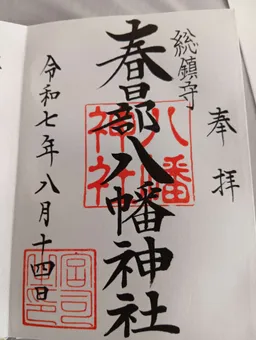 奉拝
総鎮守
春日部八幡神社
八幡神社
令和七年八月十四日